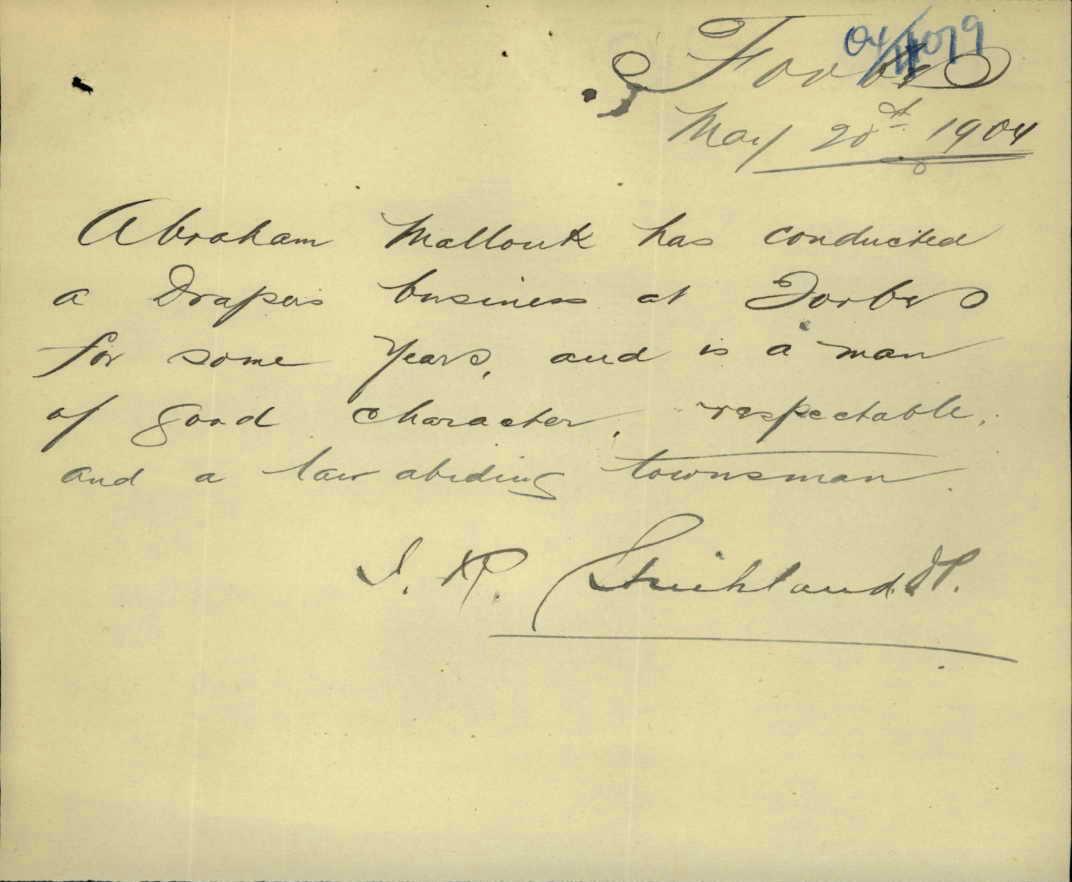 04/4079
Forbes
May 20th 1904
Abraham Mallouk has conducted
a Drapers business at Forbes
for some years, and is a man
of good character, respectable,
and a law abiding townsman.
Strickland. JP.